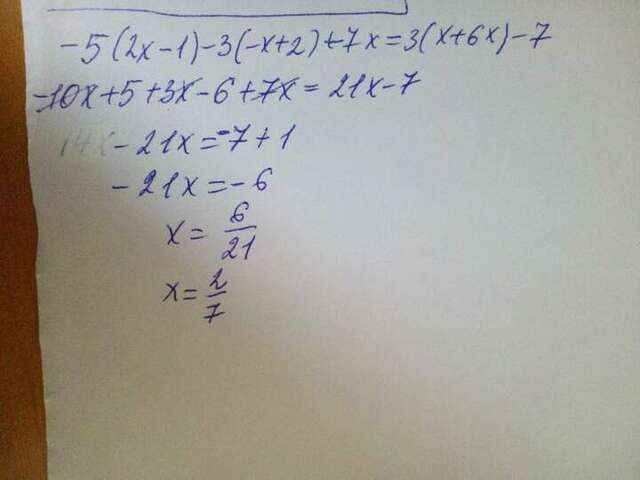 -5(2x-1)-3(-x+2)+7x=3(x+6x)-7
-10x+5+3x-6+7x=21x-7
-21x=-7+1
-21x=-6
x=6/21
x=2/7